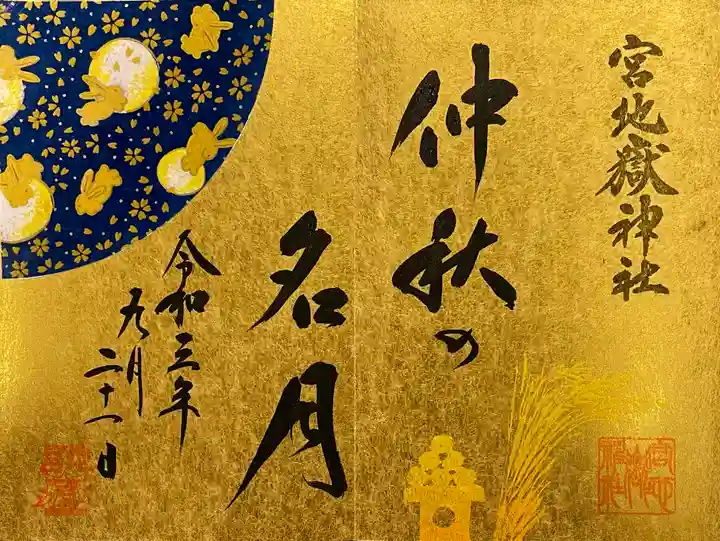 宮地嶽神社
仲秋の
名月
令和三年
九月
二十一日